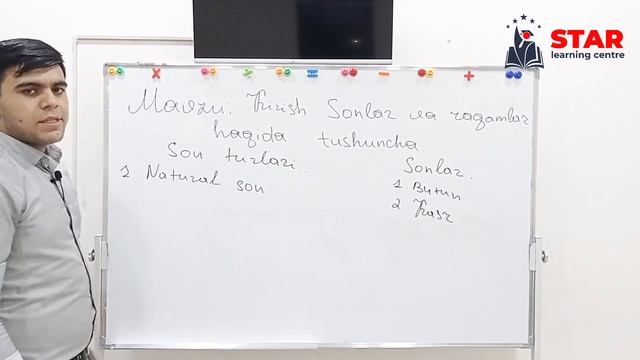 STAR
learning centre
Mavzu: Kirish. Sonlar va raqamlar
haqida tushuncha
Son turlari:
1. Natural son
Sonlar:
1 Butun
2 Kasr